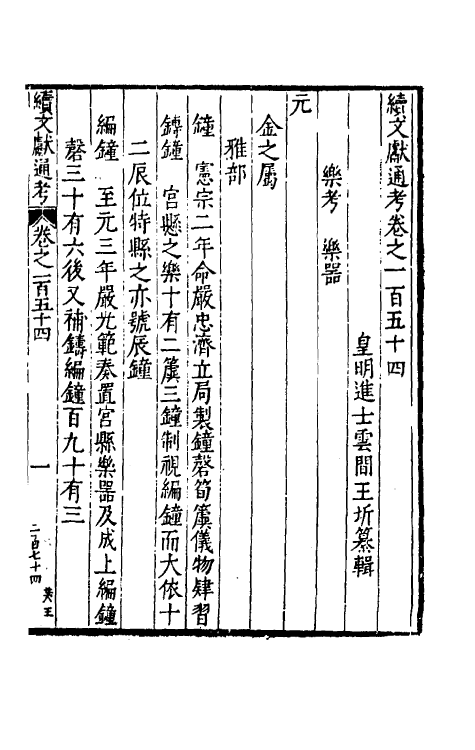 續文獻通考卷之一百五十四
皇明進士雲間王圻纂輯
樂考　樂器
元
金之屬
雅部
鐘　憲宗二年命嚴忠濟立局製鐘磬筍簴儀物肄習
鏄鐘　宮縣之樂十有二簴三鐘制視編鐘而大依十
二辰位特縣之亦號辰鐘
編鐘　至元三年嚴光範奏置宮縣樂器及成上編鐘
磬三十有六後又補鑄編鐘百九十有三
續文獻通考　卷之一百五十四　一
二百七十四